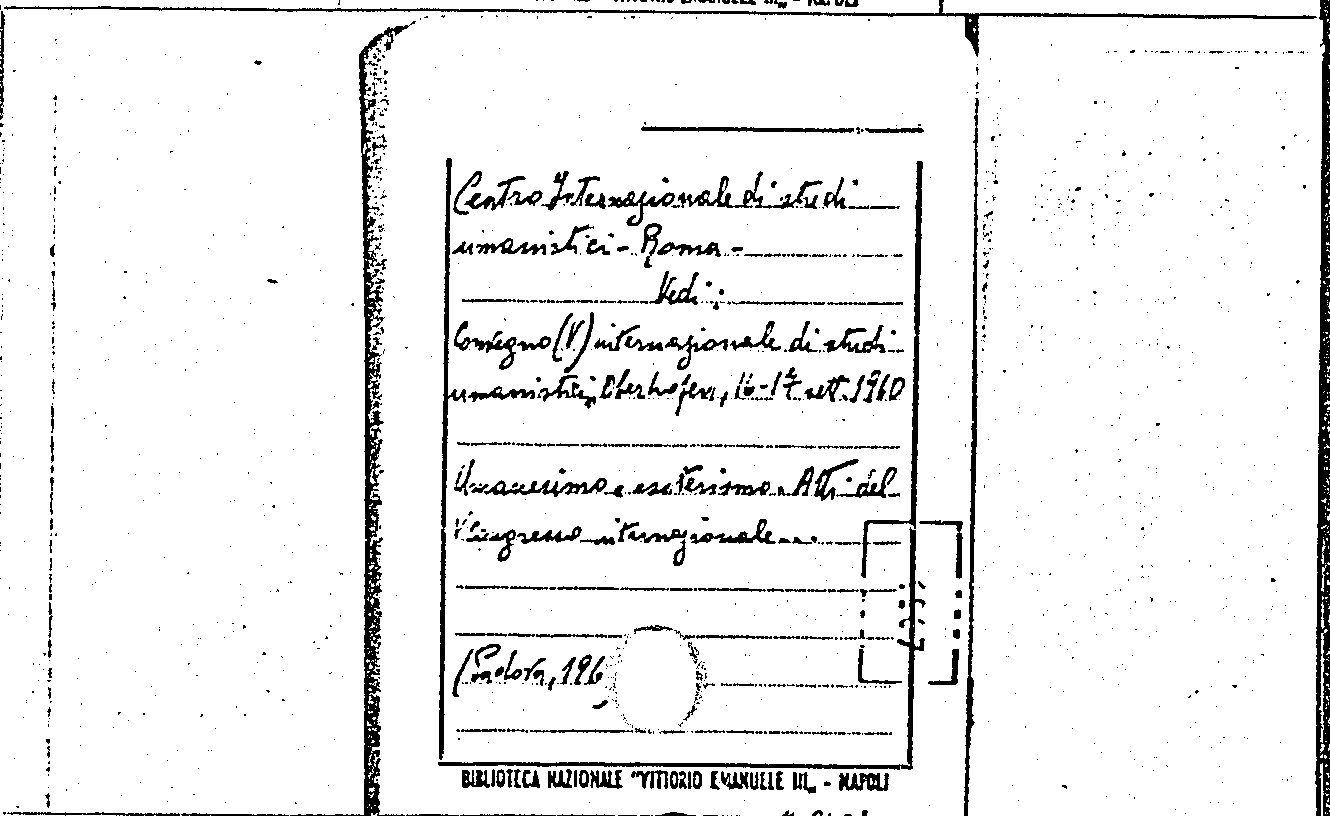 Centro Internazionale di studi
umanistici - Roma -
Vedi:
Convegno (V) internazionale di studi
umanistici, Oberhofen, 16-17 sett. 1960
Umanesimo e esoterismo. Atti del
V Congresso internazionale...
(Padova, 196
BIBLIOTECA NAZIONALE "VITTORIO EMANUELE III„ - NAPOLI